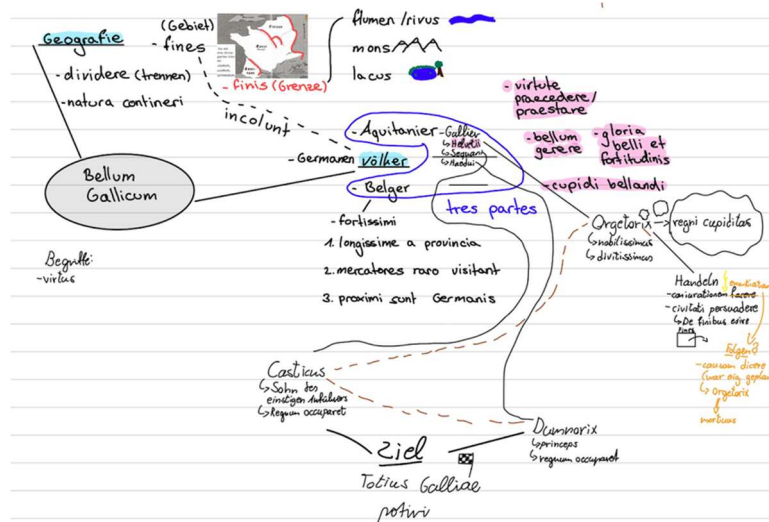 Geografie
- dividere (trennen)
- natura contineri
(Gebiet)
- fines
- finis (Grenze)
flumen / rivus
mons
lacus
incolunt
Bellum
Gallicum
- Germanen
Völker
- Aquitanier
- Gallier
↳ Helvetii
↳ Sequani
↳ Haedui
- Belger
tres partes
- fortissimi
1. longissime a provincia
2. mercatores raro visitant
3. proximi sunt Germanis
- virtute
praecedere/
praestare
- bellum
gerere
- gloria
belli et
fortitudinis
- cupidi bellandi
Orgetorix
↳ nobilissimus
↳ divitissimus
→ regni cupiditas
Handeln
- coniurationem facere
- civitati persuadere
↳ De finibus exire
fines
Folgen
- causam dicere
↳ Orgetorix
mortuus
Begriffe:
- virtus
Casticus
↳ Sohn des
einstigen Anführers
↳ Regnum occuparet
Dumnorix
↳ princeps
↳ regnum occuparet
Ziel
Totius Galliae
potiri